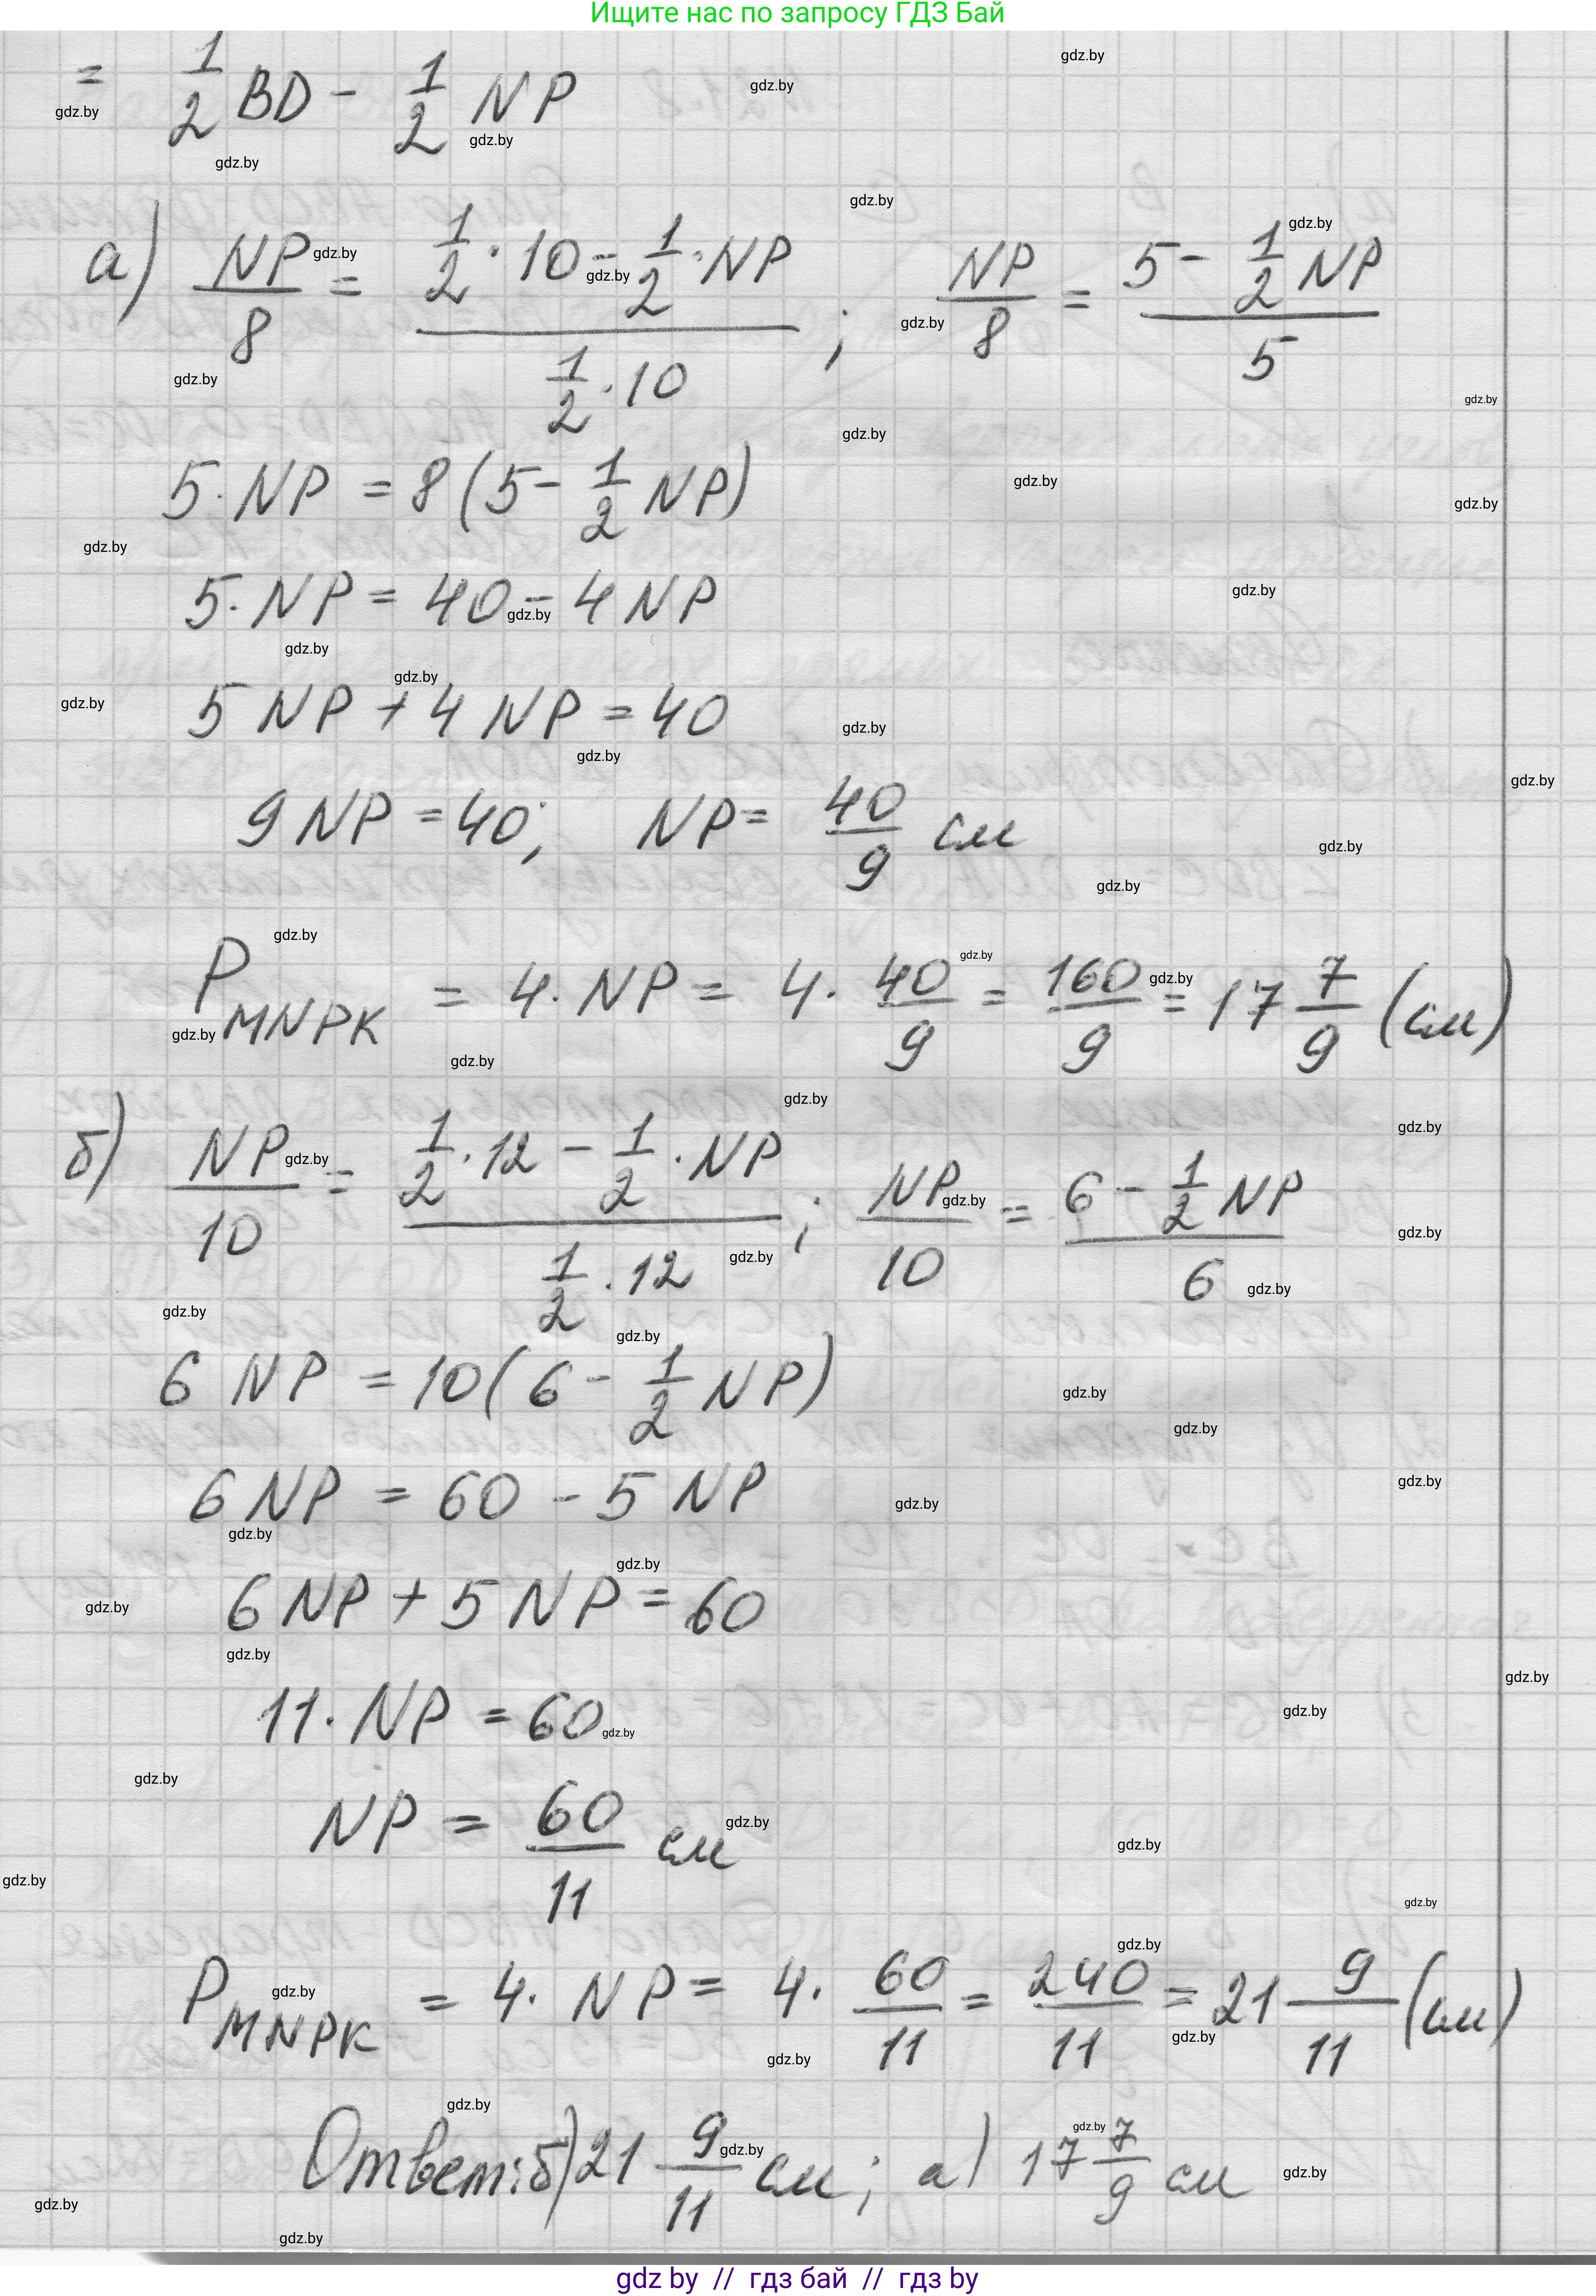 Ищите нас по запросу ГДЗ Бай
= 1/2 BD - 1/2 NP
а) NP/8 = (1/2 · 10 - 1/2 · NP)/(1/2 · 10) ; NP/8 = (5 - 1/2 NP)/5
5 · NP = 8 (5 - 1/2 NP)
5 · NP = 40 - 4 NP
5 NP + 4 NP = 40
9 NP = 40; NP = 40/9 см
P MNPK = 4 · NP = 4 · 40/9 = 160/9 = 17 7/9 (см)
б) NP/10 = (1/2 · 12 - 1/2 · NP)/(1/2 · 12) ; NP/10 = (6 - 1/2 NP)/6
6 NP = 10 (6 - 1/2 NP)
6 NP = 60 - 5 NP
6 NP + 5 NP = 60
11 · NP = 60
NP = 60/11 см
P MNPK = 4 · NP = 4 · 60/11 = 240/11 = 21 9/11 (см)
Ответ: б) 21 9/11 см; а) 17 7/9 см
gdz by // гдз бай // гдз by